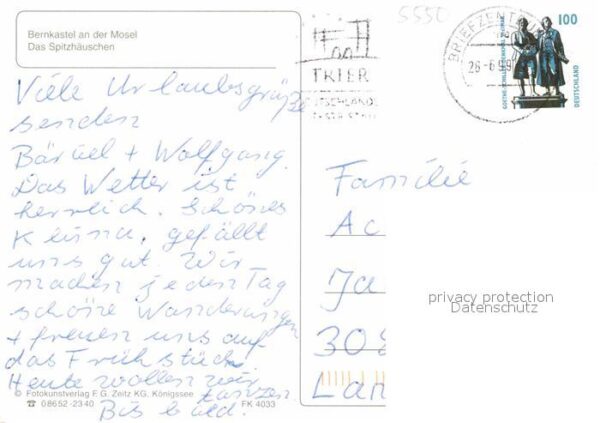 Bernkastel an der Mosel
Das Spitzhäuschen
Viele Urlaubsgrüße
senden
Bärbel + Wolfgang.
Das Wetter ist
herrlich. Schönes
Klima, gefällt
uns gut. Wir
machen jeden Tag
schöne Wanderungen
+ freuen uns auf
das Frühstück.
Heute wollen wir
tanzen.
Bis bald.
© Fotokunstverlag F. G. Zeitz KG. Königssee
☎ 08652-2340 FK 4033
5550
TRIER
BRIEFZENTRUM
26-6
100
GOETHE-SCHILLER-DENKMAL WEIMAR
DEUTSCHLAND
Familie
Ac
Ja
308
Lan
privacy protection
Datenschutz